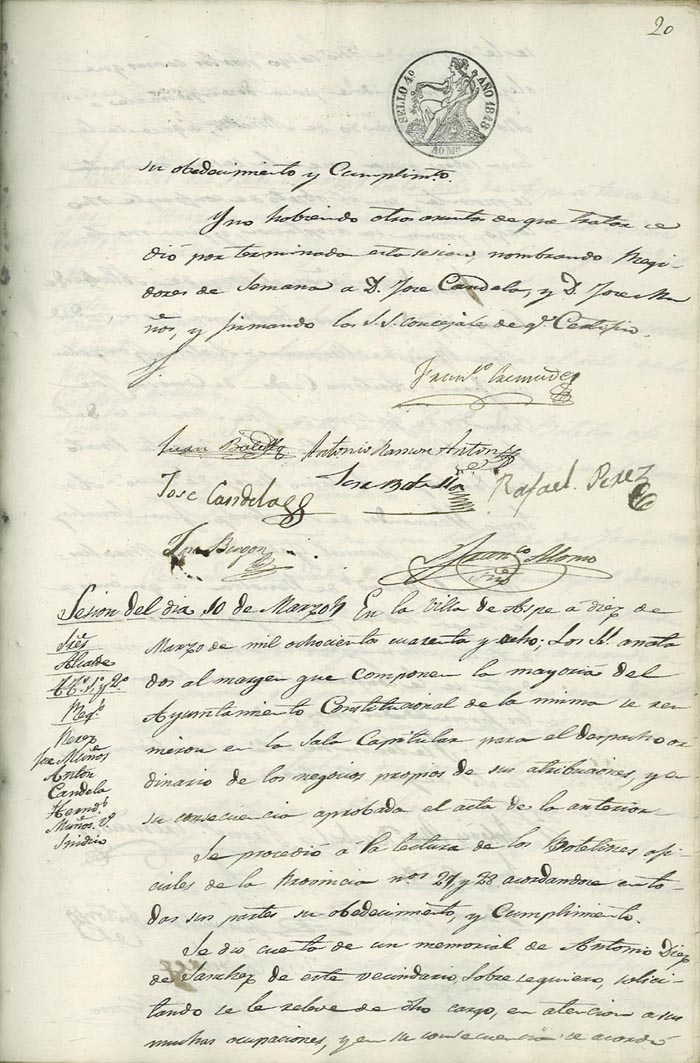 20
SELLO 4º AÑO 1848
40 Ms
su obedecimiento y Cumplimto.
Y no habiendo otros asuntos de que tratar se
dió por terminada esta sesion, nombrando Regi-
dores de Semana a D. Jose Candela, y D. Jose Mu
ños, y firmando los S.S. concejales de q.e Certifico.
Juan Botella Antonio Ramon Anton
Jose Candela Jose Botella Rafael Perez
Franco Alonso
Srio
Sesion del dia 10 de Marzo En la Villa de Aspe a diez de
Marzo de mil ochocientos cuarenta y ocho; Los SS. anota
dos al margen que componen la mayoria del
Ayuntamiento Constitucional de la misma se reu
nieron en la Sala Capitular para el despacho or
dinario de los negocios propios de sus atribuciones, y en
su consecuencia aprobada el acta de la anterior
Sres
Alcalde
Tes. 1º y 2º
Regs
Perez
Jose Muños
Anton
Candela
Hernds
Muños Vo
Sindico
Se procedió á la lectura de los Botelines ofi
ciales de la Provincia nos 27 y 28 acordandose en to
das sus partes su obedecimiento, y Cumplimiento.
Se dio cuenta de un memorial de Antonio Diez
de Sanchez de este vecindario, Sobreseequiero, solici
tando se le releve de dho cargo, en atencion a sus
muchas ocupaciones, y en su consecuencia se acordó